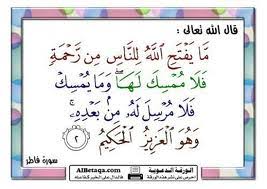 قال الله تعالى :
مَا يَفْتَحِ اللَّهُ لِلنَّاسِ مِن رَّحْمَةٍ
فَلَا مُمْسِكَ لَهَا ۖ وَمَا يُمْسِكْ
فَلَا مُرْسِلَ لَهُ مِن بَعْدِهِ ۚ
وَهُوَ الْعَزِيزُ الْحَكِيمُ ٢
سورة فاطر
البطاقة الدعوية
AlBetaqa.com